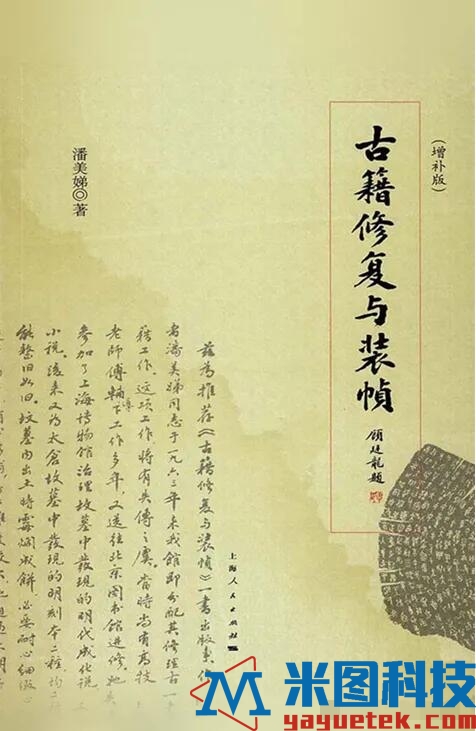 (增补版)
古籍修复与装帧
顾廷龙题
潘美娣◎著
兹为推荐《古籍修复与装帧》一书出版事作
者潘美娣同志于一九六三年来我馆即分配其修理古
籍工作。这项工作将有失传之虞。当时尚有高技
老师傅辅导下工作多年,又送往北京图书馆进修。她
参加了上海博物馆治理坟墓中发现的明代成化说
小说。后来又为太仓坟墓中发现的明刻本二种均
能整旧如旧。坟墓内出土时霉烂成饼。必要耐心细微
上海人民出版社
米图科技
www.yayuetek.com